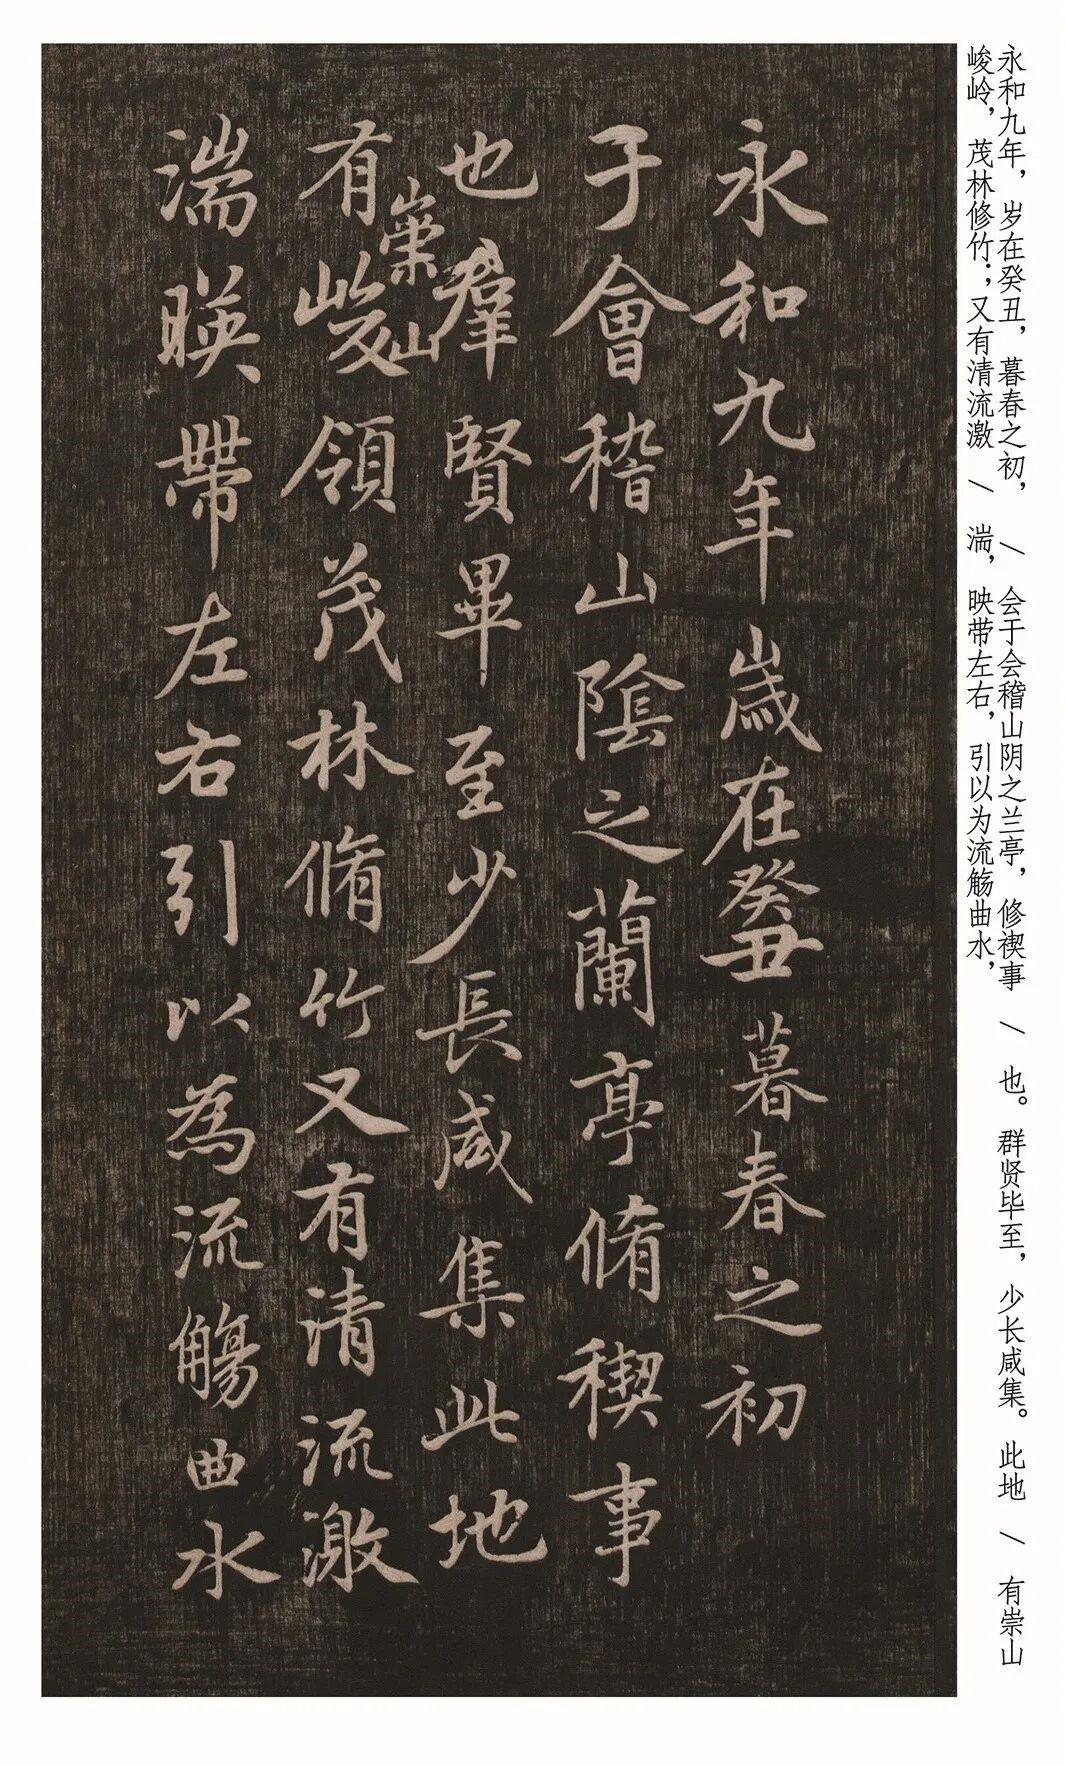 永和九年，岁在癸丑，暮春之初， / 会于会稽山阴之兰亭，修禊事 / 也。群贤毕至，少长咸集。此地 / 有崇山
峻岭，茂林修竹；又有清流激 / 湍，映带左右，引以为流觞曲水，
永和九年歲在癸丑暮春之初
于會稽山陰之蘭亭脩稧事
也羣賢畢至少長咸集此地
有崇山峻領茂林脩竹又有清流激
湍暎帶左右引以為流觴曲水